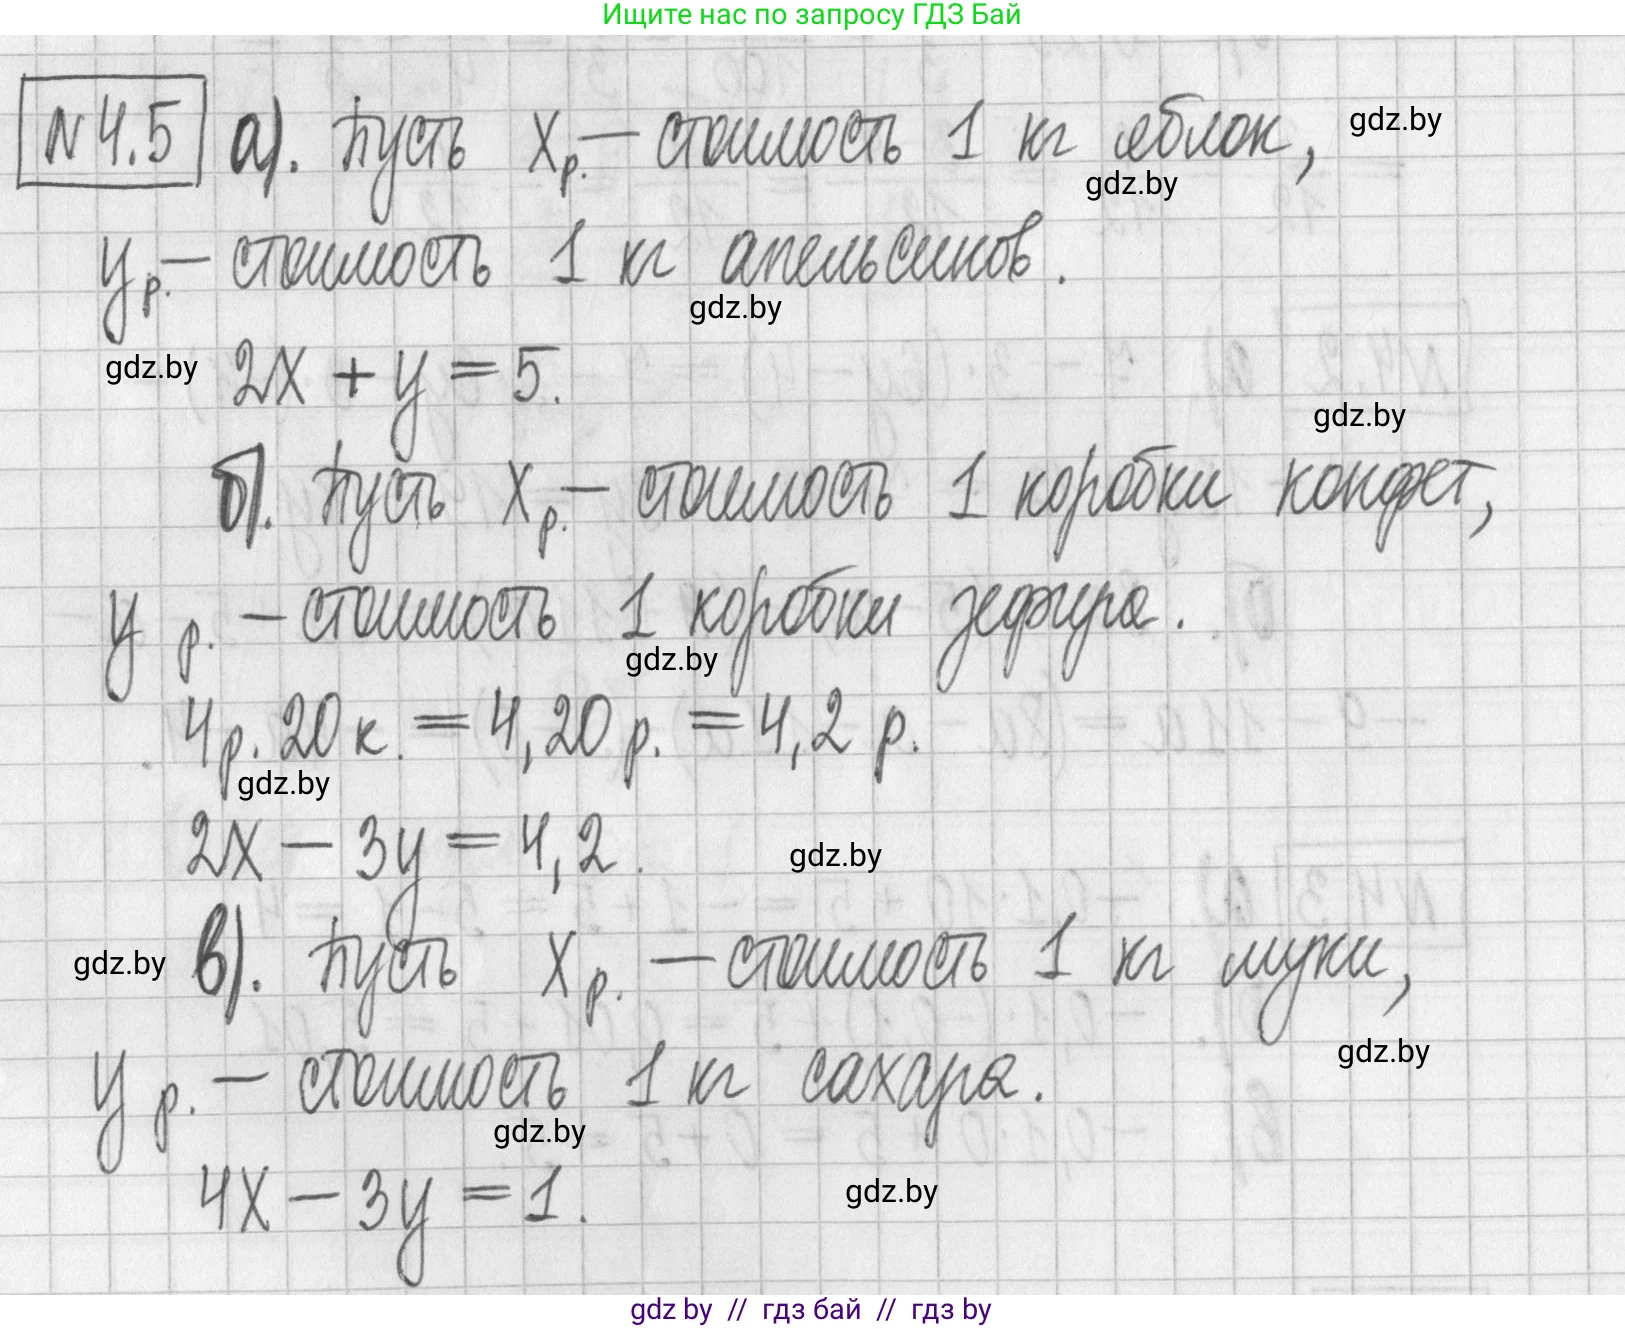 Ищите нас по запросу ГДЗ Бай
N 4.5 а). Пусть x р. — стоимость 1 кг яблок, gdz.by
gdz.by
y р. — стоимость 1 кг апельсинов.
gdz.by
gdz.by 2x + y = 5.
gdz.by
б). Пусть x р. — стоимость 1 коробки конфет,
y р. — стоимость 1 коробки зефира.
gdz.by
4 р. 20 к. = 4,20 р. = 4,2 р.
gdz.by
2x − 3y = 4,2. gdz.by
gdz.by в). Пусть x р. — стоимость 1 кг муки,
gdz.by
y р. — стоимость 1 кг сахара.
gdz.by
4x − 3y = 1. gdz.by
gdz by // гдз бай // гдз by